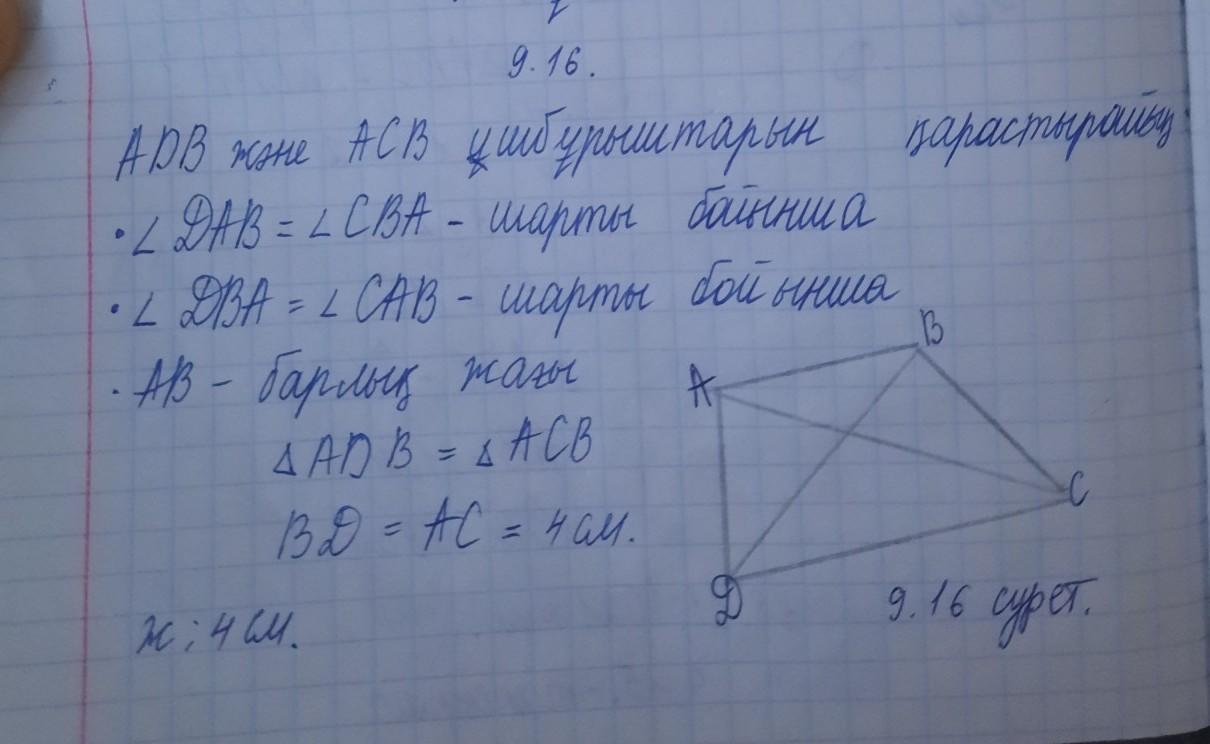 9.16.
ADB және ACB үшбұрыштарын қарастырайық
• ∠ DAB = ∠ CBA - шарты бойынша
• ∠ DBA = ∠ CAB - шарты бойынша
• AB - барлық жағы
Δ ADB = Δ ACB
BD = AC = 4 см.
ж: 4 см.
A
B
C
D
9.16 сурет.